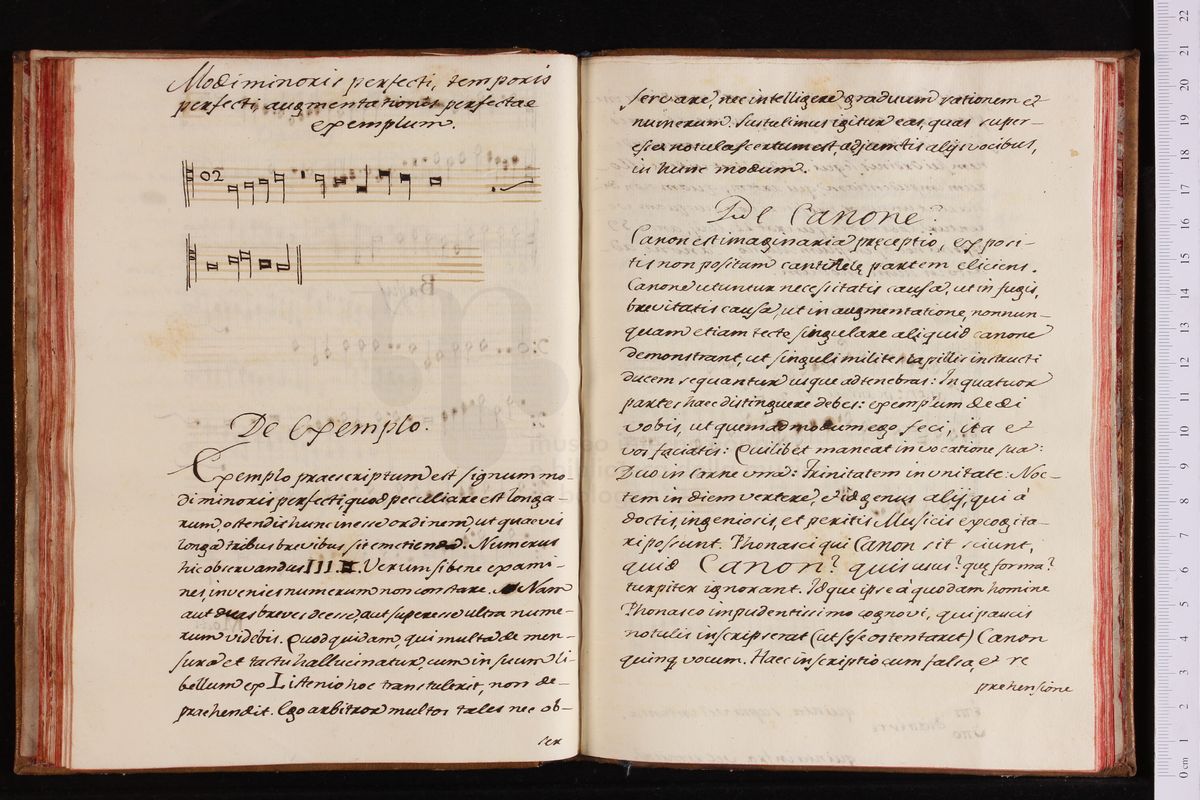 Modi minoris perfecti, temporis
perfecti, augmentationis perfectae
exemplum.
O2
De Exemplo.
Exemplo praescriptum est signum mo-
di minoris perfecti, quod peculiare est longa-
rum, ostendit hunc inesse ordinem, ut quaevis
longa tribus brevibus sit emetienda. Numerus
hic observandus III. Verum si bene exami-
nes, invenies numerum non constare. Nam
aut duas breves deesse, aut superesse ultra nume-
rum videbis. Quod quidam, qui multa de men-
sura et tactu hallucinatur cum in suum li-
bellum ex Listenio hoc transtulerit, non de-
praehendit. Ego arbitror multos tales nec ob-
ser
servare, nec intelligere graduum rationem et
numerum. Sustulimus igitur eas, quas super-
esse notulas certum est, adjunctis alijs vocibus,
in hunc modum.
De Canone.
Canon est imaginaria praeceptio, ex posi-
tis non positam cantilelę partem eliciens.
Canone utuntur necessitatis causa, ut in fugis,
brevitatis causa, ut in augmentatione, nonnun-
quam etiam tecte singulare aliquid canone
demonstrant, ut singuli milites capillis instructi
ducem sequantur usque ad tenebras: In quatuor
partes haec distinguere debes: exemplum dedi
vobis, ut quemadmodum ego feci, ita et
vos faciatis: Quilibet maneat in vocatione sua:
Duo in carne una: Trinitatem in unitate: Noc-
tem in diem vertere et id genus alij, qui à
doctis, ingeniosis, et peritis Musicis excogita-
ri possunt. Phonasci qui Canon sit sciunt,
quid Canon? quis usus? quę forma?
turpiter ignorant. Idque ipse à quodam homine
Phonasco impudentissimo cognovi, qui paucis
notulis inscripserat (ut sese ostentaret) Canon
quinq vocum. Haec inscriptio cum falsa, et re
prehensione
0 cm 1 2 3 4 5 6 7 8 9 10 11 12 13 14 15 16 17 18 19 20 21 22